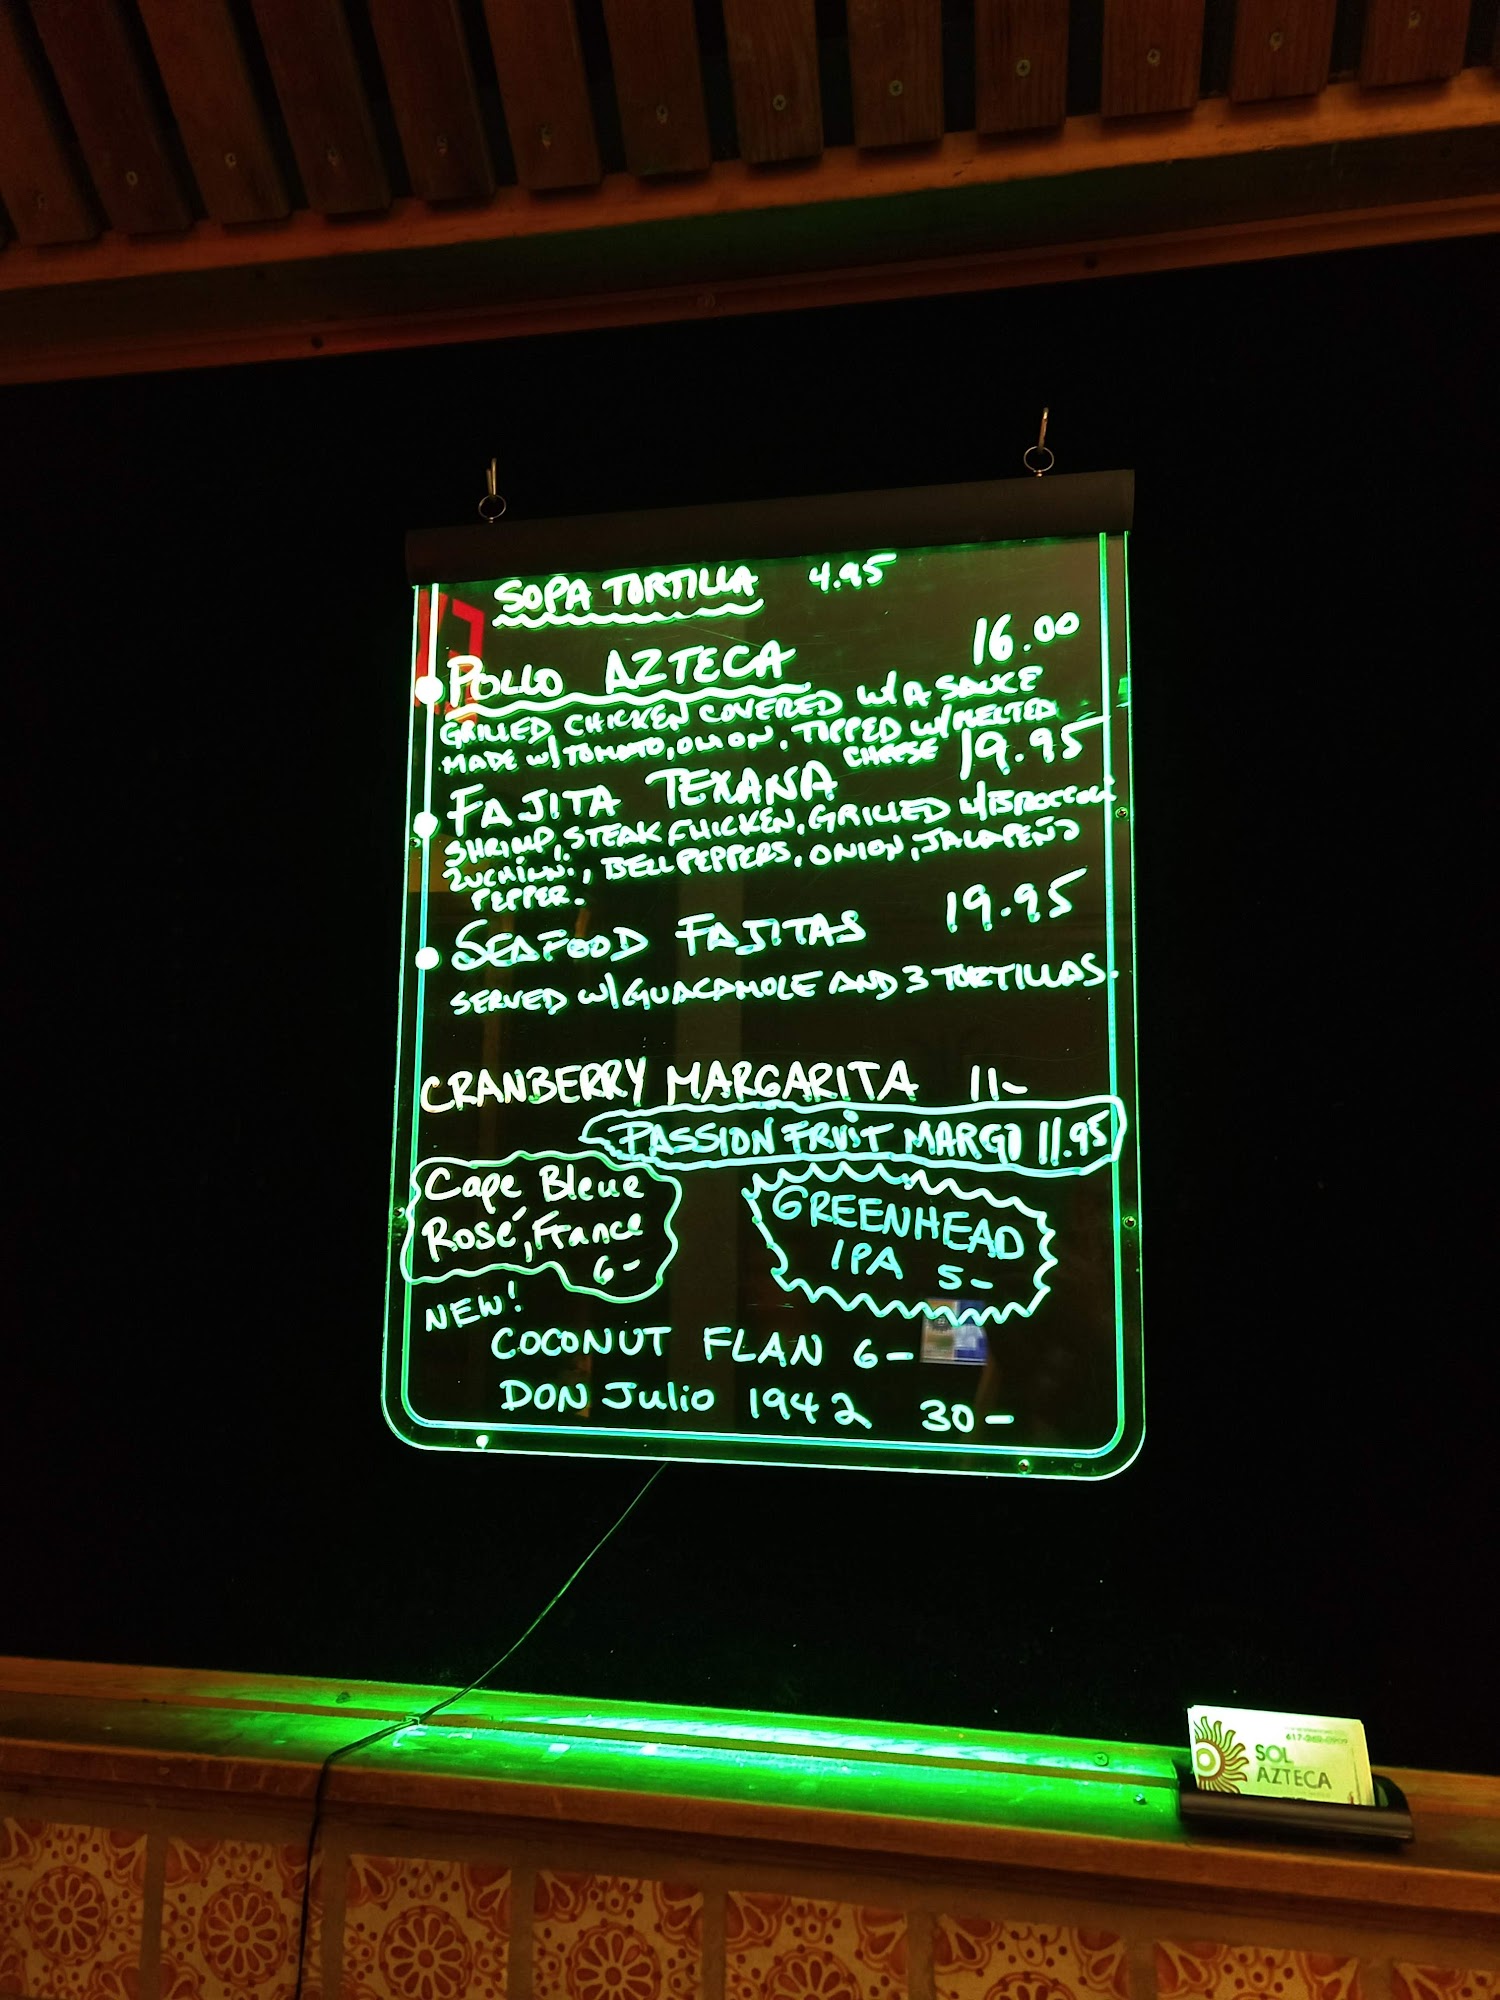 SOPA TORTILLA 4.95
POLLO AZTECA 16.00
GRILLED CHICKEN COVERED W/A SAUCE
MADE W/TOMATO, ONION. TOPPED W/MELTED
CHEESE
FAJITA TEXANA 19.95
SHRIMP, STEAK CHICKEN, GRILLED W/BROCCOLI
ZUCHINNI, BELL PEPPERS, ONION, JALAPEÑO
PEPPER.
SEAFOOD FAJITAS 19.95
SERVED W/GUACAMOLE AND 3 TORTILLAS.
CRANBERRY MARGARITA 11-
PASSION FRUIT MARGO 11.95
Cape Bleue
Rosé, France
6-
GREENHEAD
IPA 5-
NEW!
COCONUT FLAN 6-
DON Julio 1942 30-
SOL
AZTECA